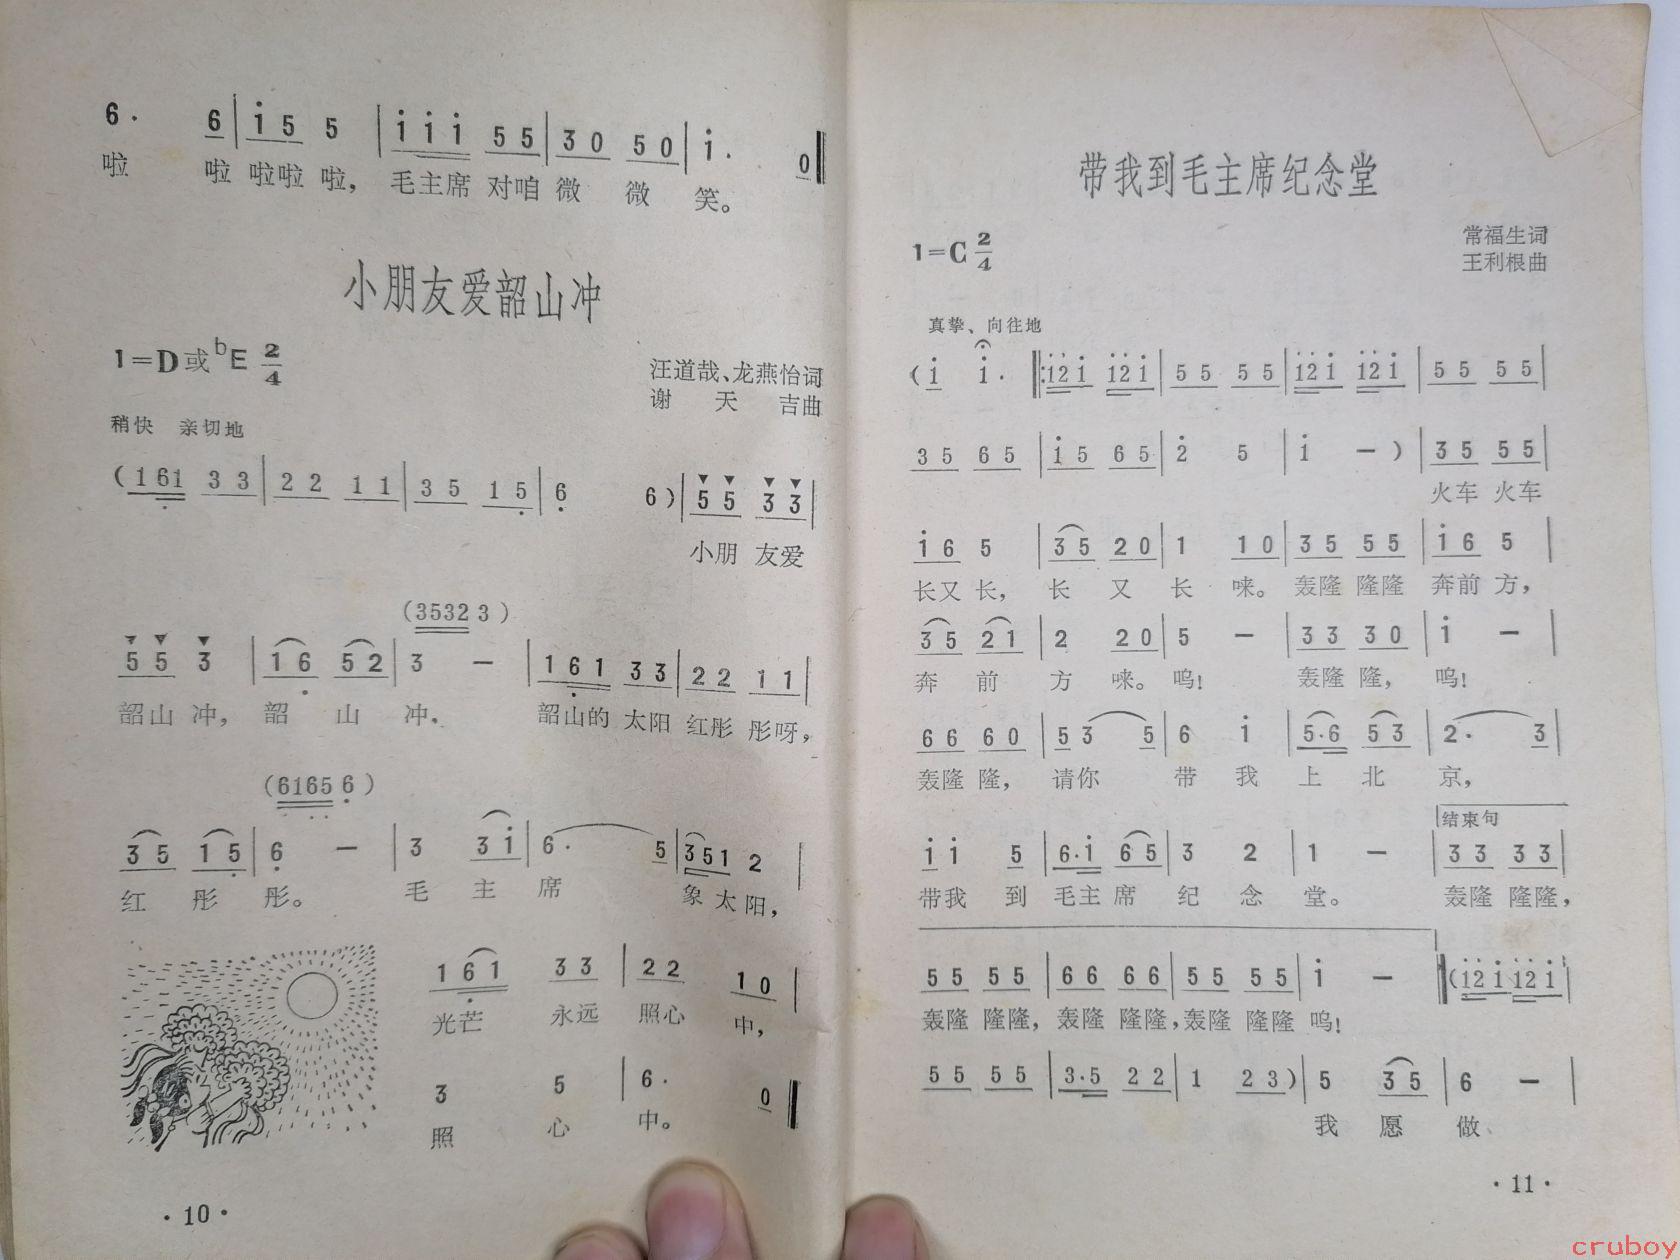 6· 6 | i 5 5 | i i i 5 5 | 3 0 5 0 | i· 0
啦 啦 啦啦 啦， 毛主席 对咱 微 微 笑。
小朋友爱韶山冲
1=D或bE 2/4
汪道哉、龙燕怡词
谢 天 吉曲
稍快 亲切地
(1 6 1 3 3 | 2 2 1 1 | 3 5 1 5 | 6 6) | 5 5 3 3 |
小朋 友爱
(3532 3)
5 5 3 | 1 6 5 2 | 3 — | 1 6 1 3 3 | 2 2 1 1 |
韶山 冲， 韶 山 冲。 韶山的 太阳 红彤 彤呀，
(6165 6)
3 5 1 5 | 6 — | 3 3 i | 6· 5 | 3 5 1 2 |
红 彤 彤。 毛 主 席 象 太 阳，
1 6 1 3 3 | 2 2 1 0 |
光芒 永远 照心 中，
3 5 | 6· 0
照 心 中。
·10·
带我到毛主席纪念堂
1=C 2/4
常福生词
王利根曲
真挚、向往地
(i i· |: i 2 i i 2 i | 5 5 5 5 | i 2 i i 2 i | 5 5 5 5 |
3 5 6 5 | i 5 6 5 | 2 5 | i —) | 3 5 5 5 |
火车 火车
i 6 5 | 3 5 2 0 | 1 1 0 | 3 5 5 5 | i 6 5 |
长又 长， 长 又 长 唻。 轰隆 隆隆 奔前 方，
3 5 2 1 | 2 2 0 | 5 — | 3 3 3 0 | i — |
奔 前 方 唻。 呜！ 轰隆 隆， 呜！
6 6 6 0 | 5 3 5 | 6 i | 5·6 5 3 | 2· 3 |
轰隆 隆， 请你 带 我 上 北 京，
结束句
i i 5 | 6·i 6 5 | 3 2 | 1 — | 3 3 3 3 |
带我 到 毛主 席 纪 念 堂。 轰隆 隆隆，
5 5 5 5 | 6 6 6 6 | 5 5 5 5 | i — || (i 2 i i 2 i |
轰隆 隆隆，轰隆 隆隆，轰隆 隆隆 呜！
5 5 5 5 | 3·5 2 2 | 1 2 3) | 5 3 5 | 6 — |
我 愿 做
·11·
cruboy